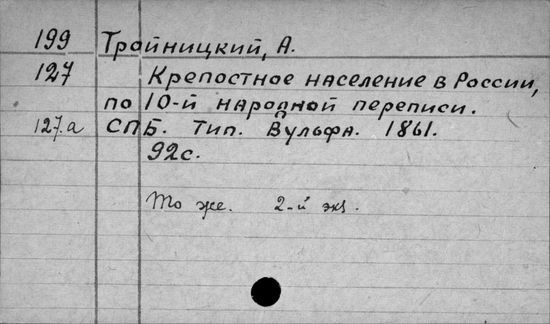 199 Тройницкий, А.
127 Крепостное население в России,
по 10-й народной переписи.
127.а СПБ. Тип. Вульфа. 1861.
92с.
То же. 2-й экз.